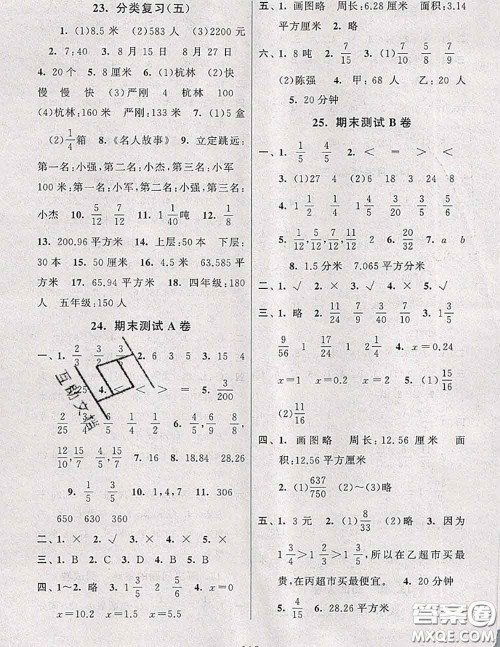 23. 分类复习(五)
1. (1)8.5 米 (2)583 人 (3)2200 元
2. 略 3. 8 月 15 日 8 月 27 日
4. 20 个 5. 8 厘米 6. (1)杭林 (2)快
慢 慢 快 (3)严刚 杭林
7. 杭林:160 米 严刚:133 米 8. (1)5 盒
(2)1/4 箱 《名人故事》 9. 立定跳远:
第一名:小强,第二名:小杰,第三名:小军
100 米:第一名:小军,第二名:小强,第三名:
小杰 10. 5/12 7/12 11. 1/40 吨 12. 8/9
13. 200.96 平方米 14. 上层:50 本 下层:
30 本 15. 60 米 16. 4.5 米 63.585 平
方米 17. 65.94 平方米 18. 四年级:180
人 五年级:150 人
24. 期末测试 A 卷
一、1. 2/3 2. 6 3 5 3. 15 4
5. 3/200
2/25 6. 4/6 6/9 5/8
7. 1/15 4/15 8. 18.84 28.26
9. 4/5 1/5 10. 1,4,7 11. 306
650 630
二、1. × 2. √ 3. × 4. × 5. ×
三、1. B 2. C 3. B 4. D 5. A
四、1~2. 略 3. 1 1/2 5/6 4. x=0
x=10.2 x=1.5 x=5.5
五、1. 画图略 周长:6.28 厘米 面积:3.14
平方厘米 2. 略
六、1. 8 吨 2. 7/15 3. (1)
(2)陈强 4. 甲:68 人 乙:20 人
5. 20 分钟
25. 期末测试 B 卷
一、1. 1/5 4/5 2. < = > <
3. (1)27 4 (2)16 8 3/8 6/7
4. 1 2/5 5. 6. 20/32
7. a b
8. 1.5 分米 7.065 平方分米
二、1. √ 2. × 3. √ 4. √ 5. ×
三、1. 略 2. 11/15 7/24 9/10 3. 1 3/5
9/56 1 1/3 2/11 4. x=0.9
x=1 x=1/2 x=0.25 5. (1)
(2)11/16
四、1. 画图略 周长:12.56 厘米 面积:
12.56 平方厘米
2. (1)637/750 (2)~(3)略
五、1. 3 元 2. (1)8/33 (2)略 3. 因为
1 3/4>1 2/3>1 1/2,所以在乙超市买最
贵,在丙超市买最便宜。 4. 20 分钟
5. 6. 28.26 平方米
互助文档
答案圈
MXQE.COM